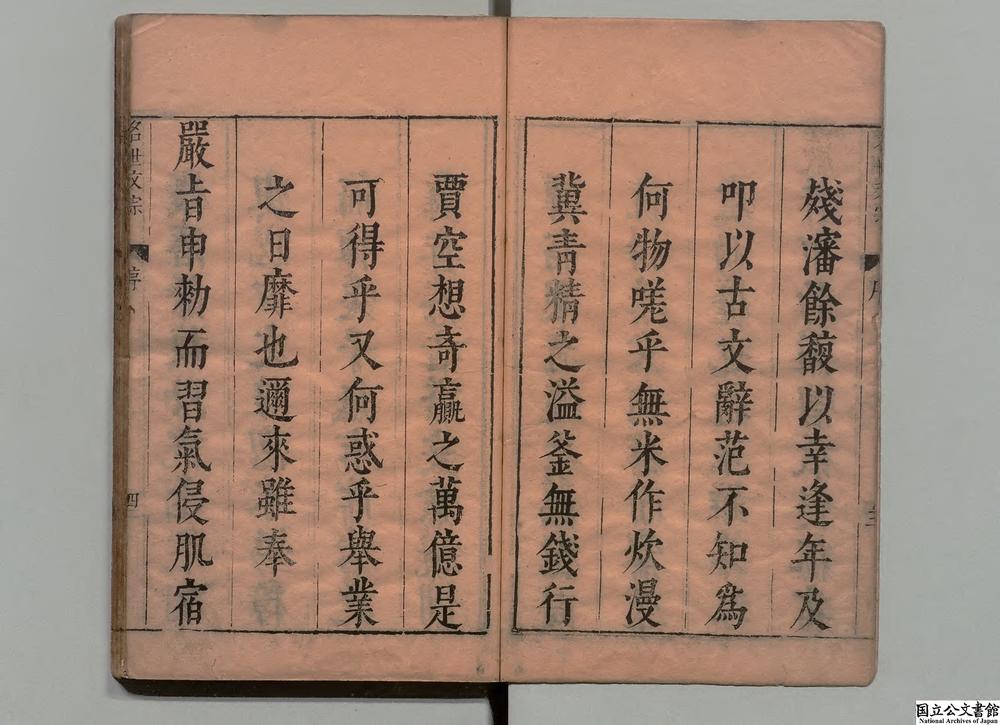 殘瀋餘馥以幸逢年及
叩以古文辭范不知為
何物嗟乎無米作炊漫
冀青精之溢釜無錢行
賈空想奇贏之萬億是
可得乎又何惑乎舉業
之日靡也邇來雖奉
嚴旨申勑而習氣侵肌宿
名世文宗
序
四
国立公文書館
National Archives of Japan